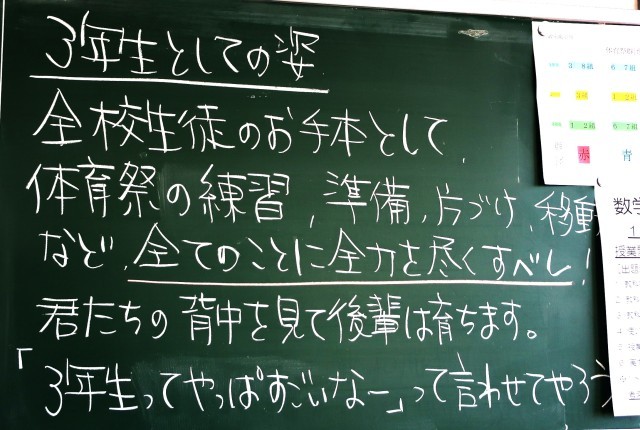 3年生としての姿
全校生徒のお手本として、
体育祭の練習、準備、片づけ、移動
など、全てのことに全力を尽くすべし!
君たちの背中を見て後輩は育ちます。
「3年生ってやっぱすごいなー」って言わせてやろう
3 8組 6 7組
1 2組 6 7組
赤 青
数学
1
授業